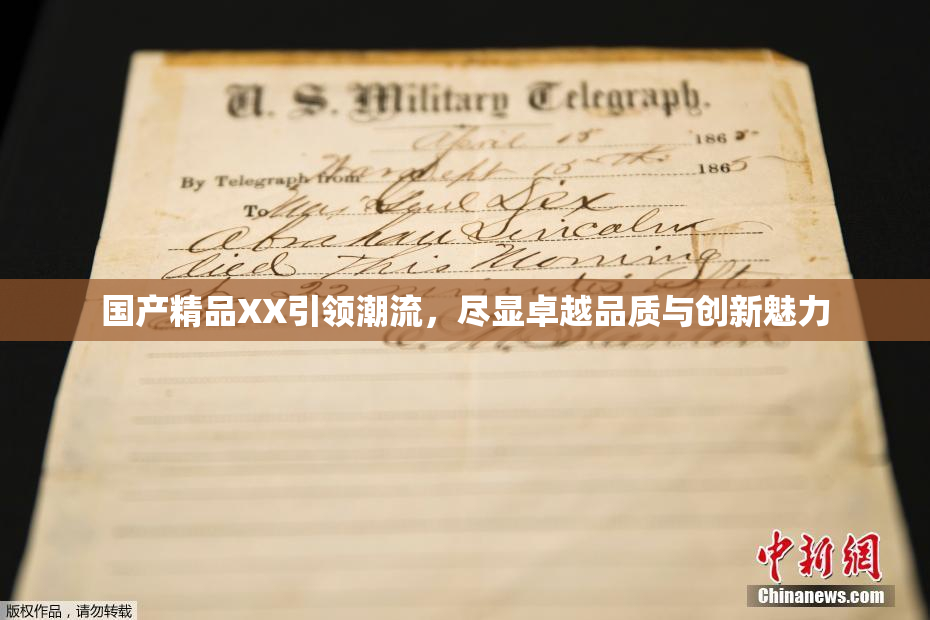 U. S. Military Telegraph.
April 15 1865
By Telegraph from War Dept 15th 1865
To Maj Genl Dix
Abraham Lincoln
died This Morning
at 22 minutes after
国产精品XX引领潮流，尽显卓越品质与创新魅力
E. M. Stanton
中新網
Chinanews.com
版权作品，请勿转载